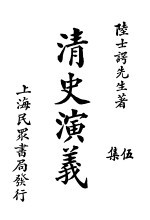 陸士諤先生著
清史演義
伍集
上海民眾書局發行